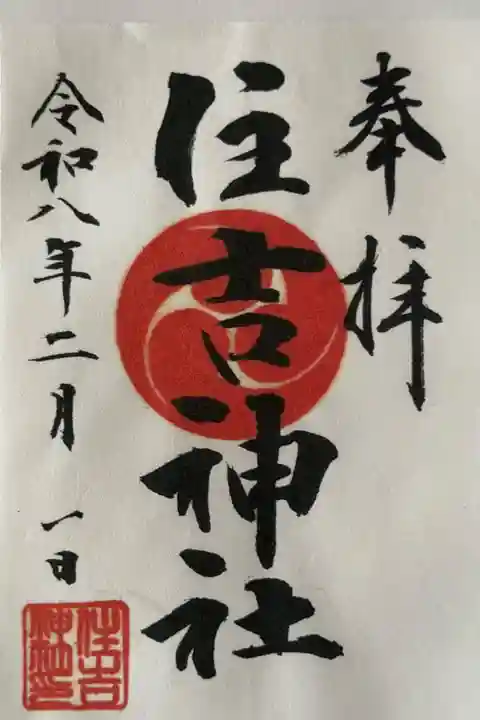 奉拝
住吉神社
令和八年二月 一日
住吉
神社